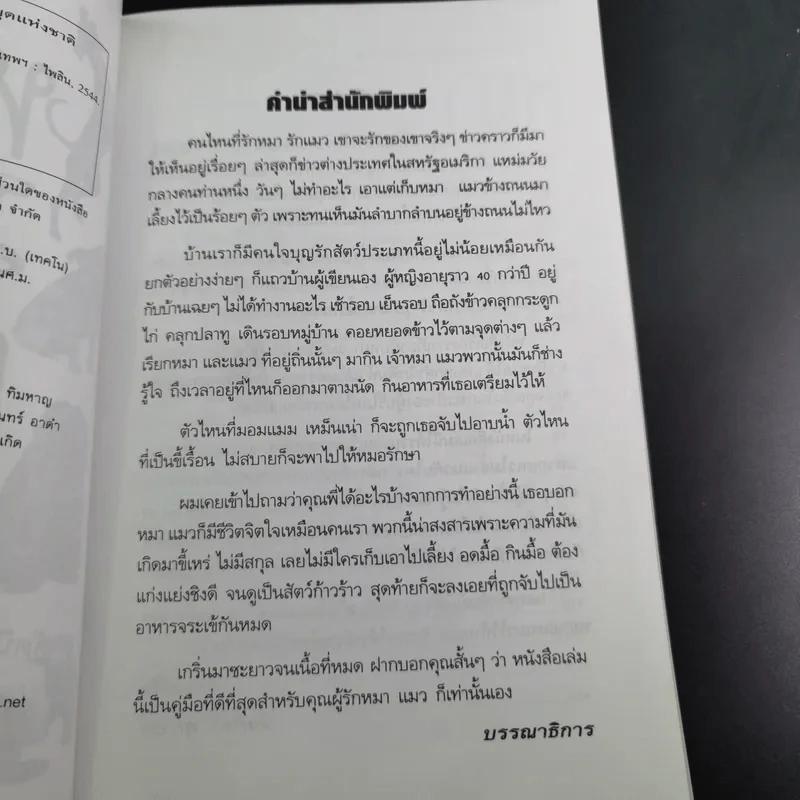 ุดแห่งชาติ
เทพฯ : ไพลิน, 2544.
ส่วนใดของหนังสือ
จำกัด
.บ. (เทคโน)
นศ.ม.
ทิมหาญ
นทร์ อาดำ
เกิด
.net
คำนำสำนักพิมพ์
คนไหนที่รักหมา รักแมว เขาจะรักของเขาจริงๆ ข่าวคราวก็มีมา
ให้เห็นอยู่เรื่อยๆ ล่าสุดก็ข่าวต่างประเทศในสหรัฐอเมริกา แหม่มวัย
กลางคนท่านหนึ่ง วันๆ ไม่ทำอะไร เอาแต่เก็บหมา แมวข้างถนนมา
เลี้ยงไว้เป็นร้อยๆ ตัว เพราะทนเห็นมันลำบากลำบนอยู่ข้างถนนไม่ไหว
บ้านเราก็มีคนใจบุญรักสัตว์ประเภทนี้อยู่ไม่น้อยเหมือนกัน
ยกตัวอย่างง่ายๆ ก็แถวบ้านผู้เขียนเอง ผู้หญิงอายุราว 40 กว่าปี อยู่
กับบ้านเฉยๆ ไม่ได้ทำงานอะไร เช้ารอบ เย็นรอบ ถือถังข้าวคลุกกระดูก
ไก่ คลุกปลาทู เดินรอบหมู่บ้าน คอยหยอดข้าวไว้ตามจุดต่างๆ แล้ว
เรียกหมา และแมว ที่อยู่ถิ่นนั้นๆ มากิน เจ้าหมา แมวพวกนั้นมันก็ช่าง
รู้ใจ ถึงเวลาอยู่ที่ไหนก็ออกมาตามนัด กินอาหารที่เธอเตรียมไว้ให้
ตัวไหนที่มอมแมม เหม็นเน่า ก็จะถูกเธอจับไปอาบน้ำ ตัวไหน
ที่เป็นขี้เรื้อน ไม่สบายก็จะพาไปให้หมอรักษา
ผมเคยเข้าไปถามว่าคุณพี่ได้อะไรบ้างจากการทำอย่างนี้ เธอบอก
หมา แมวก็มีชีวิตจิตใจเหมือนคนเรา พวกนี้น่าสงสารเพราะความที่มัน
เกิดมาขี้เหร่ ไม่มีสกุล เลยไม่มีใครเก็บเอาไปเลี้ยง อดมื้อ กินมื้อ ต้อง
แก่งแย่งชิงดี จนดูเป็นสัตว์ก้าวร้าว สุดท้ายก็จะลงเอยที่ถูกจับไปเป็น
อาหารจระเข้กันหมด
เกริ่นมาซะยาวจนเนื้อที่หมด ฝากบอกคุณสั้นๆ ว่า หนังสือเล่ม
นี้เป็นคู่มือที่ดีที่สุดสำหรับคุณผู้รักหมา แมว ก็เท่านั้นเอง
บรรณาธิการ